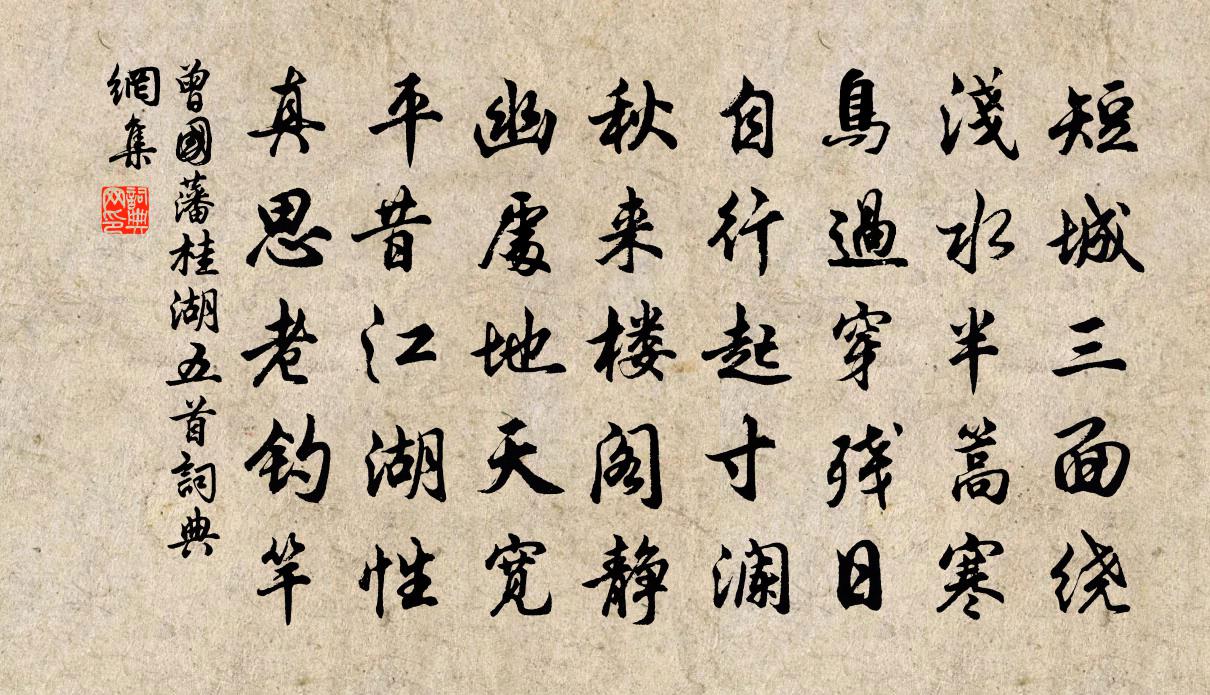 短城三面绕
淺水半蒿寒
鳥過穿残日
自行起寸澜
秋来楼阁静
幽處地天宽
平昔江湖性
真思老钓竿
曾國藩桂湖五首詞典
網集
詞典
网印